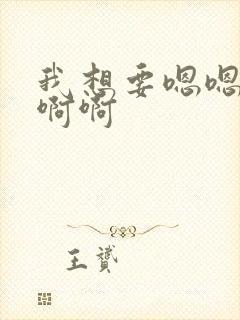 我想要嗯嗯
啊啊
王赟